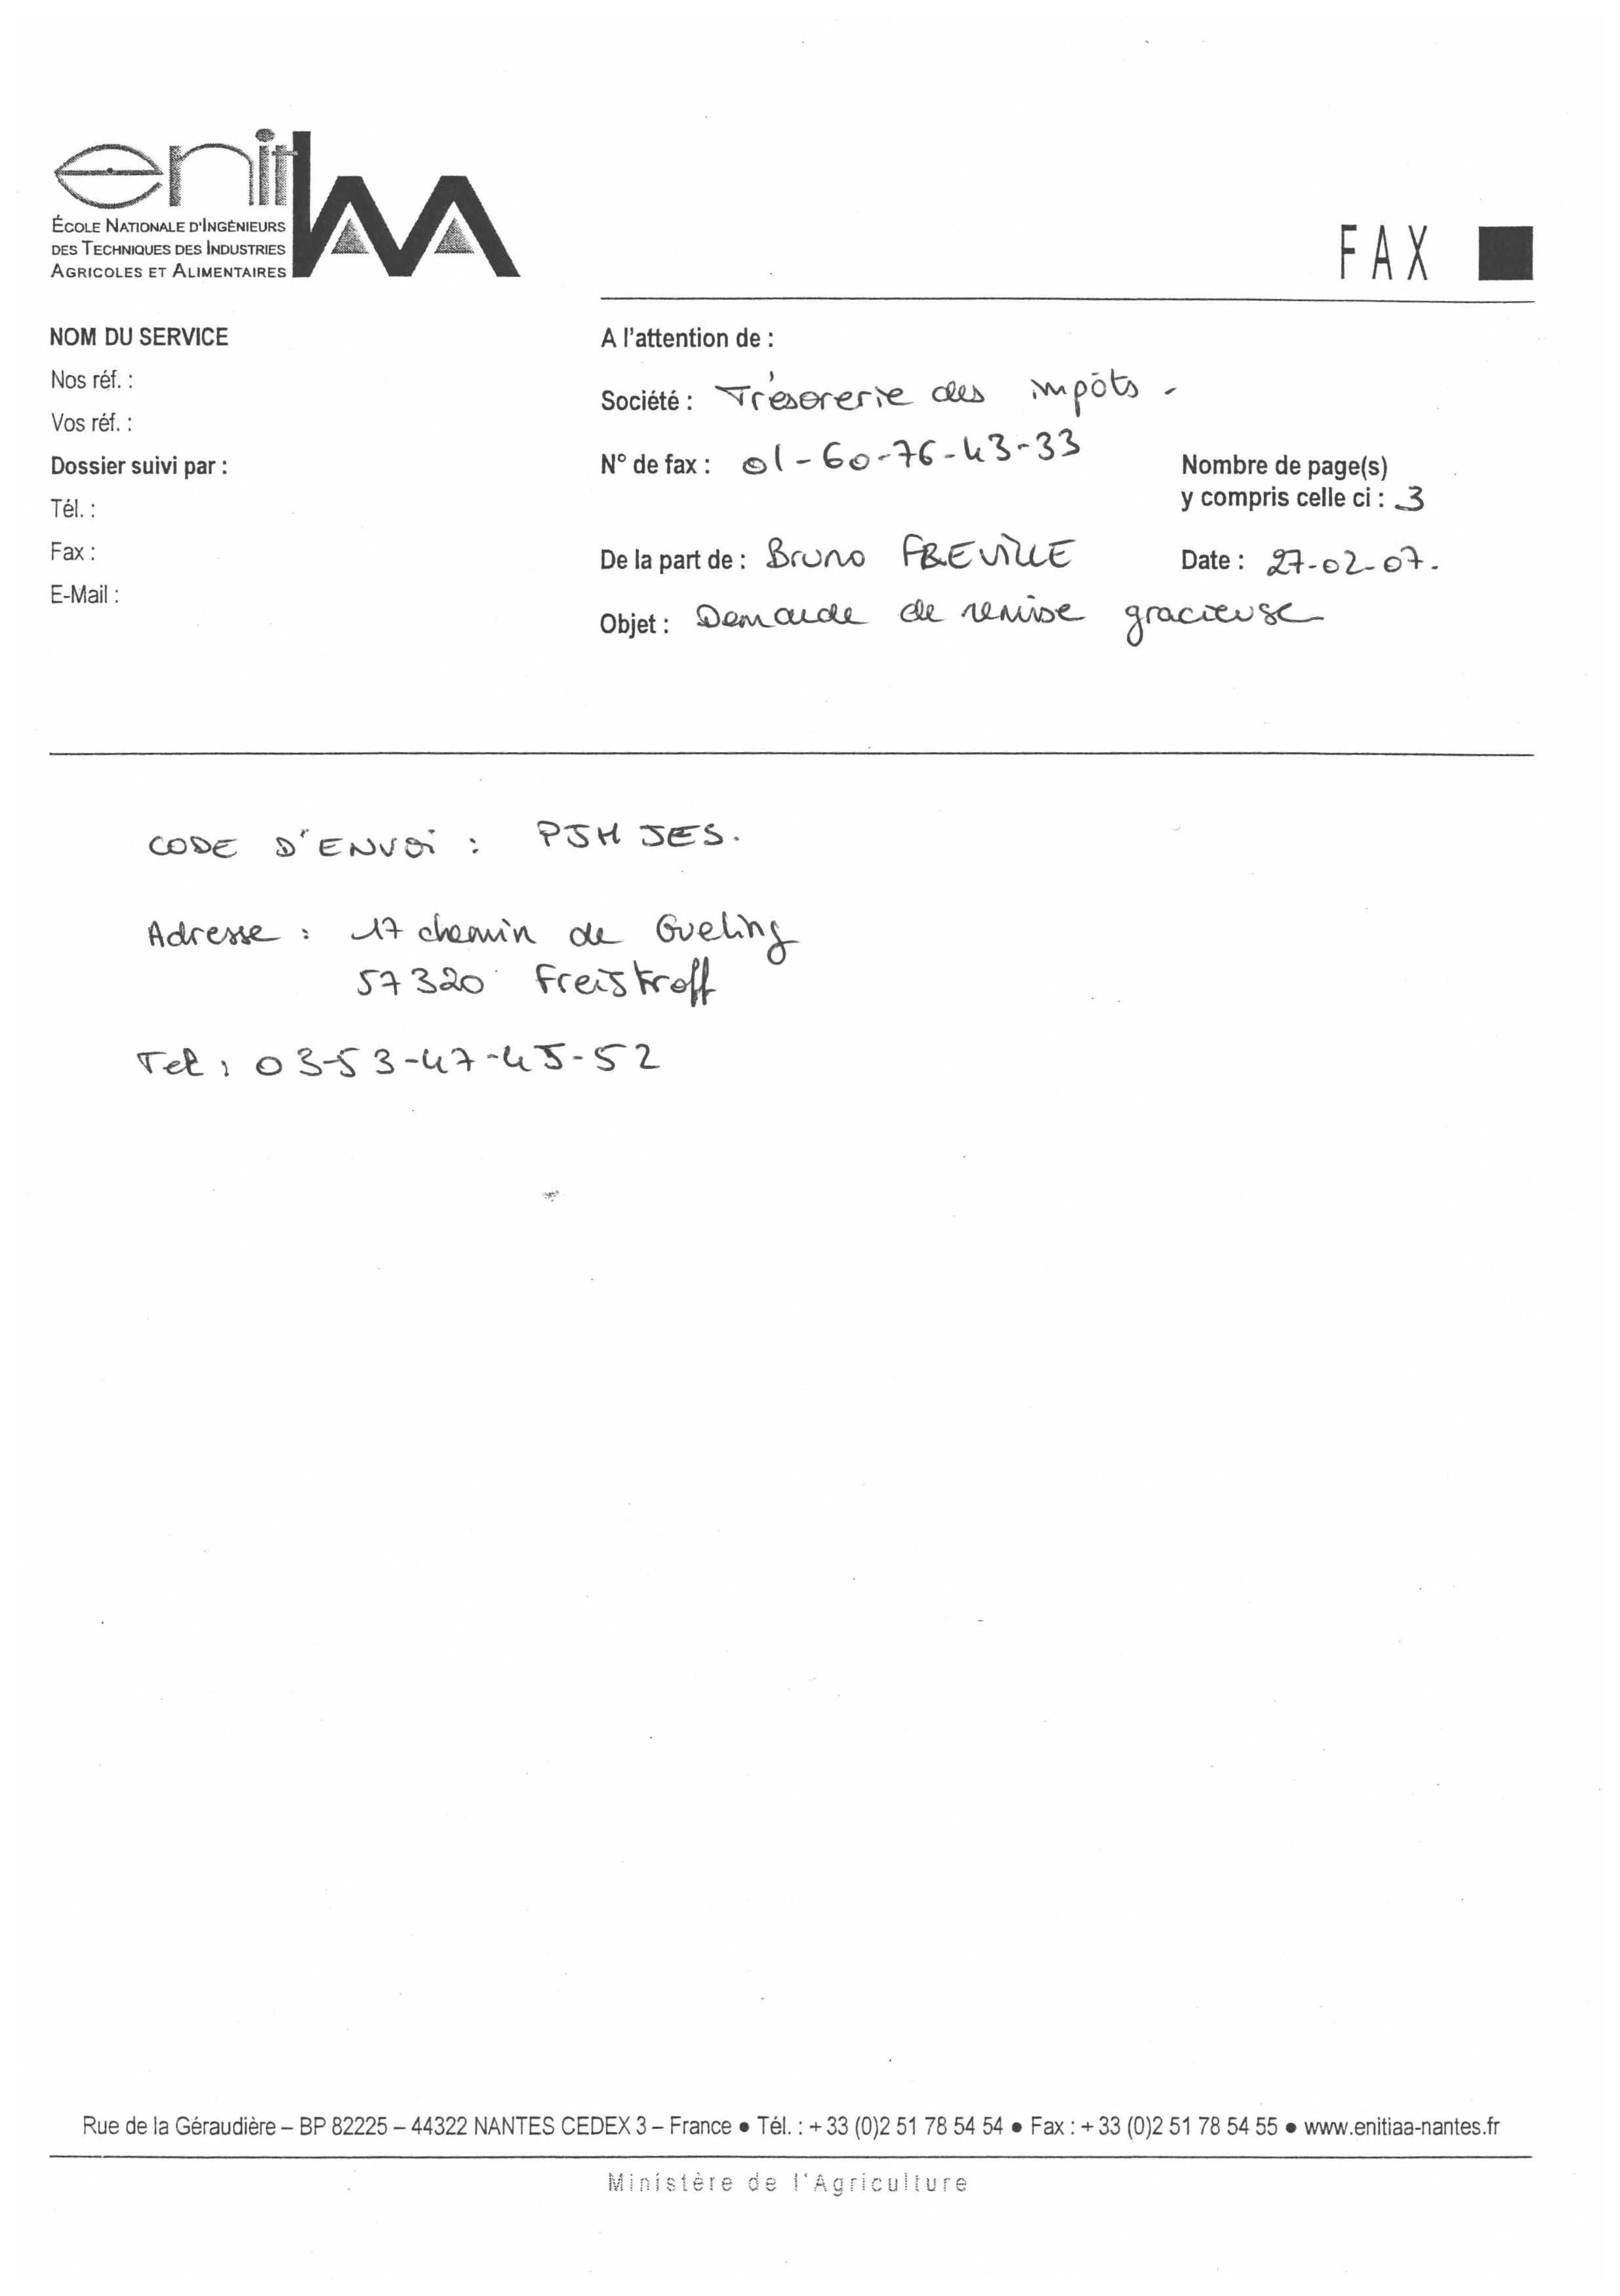 enitIAA
ÉCOLE NATIONALE D'INGÉNIEURS
DES TECHNIQUES DES INDUSTRIES
AGRICOLES ET ALIMENTAIRES
FAX
NOM DU SERVICE
Nos réf. :
Vos réf. :
Dossier suivi par :
Tél. :
Fax :
E-Mail :
A l'attention de :
Société : Trésorerie des impôts -
N° de fax : 01-60-76-43-33
Nombre de page(s)
y compris celle ci : 3
De la part de : Bruno FREVILLE
Date : 27-02-07.
Objet : Demande de remise gracieuse
CODE D'ENVOI : PJH JES.
Adresse : 17 chemin de Gueling
57320 Freistroff
Tel : 03-53-47-45-52
Rue de la Géraudière – BP 82225 – 44322 NANTES CEDEX 3 – France ● Tél. : + 33 (0)2 51 78 54 54 ● Fax : + 33 (0)2 51 78 54 55 ● www.enitiaa-nantes.fr
Ministère de l'Agriculture